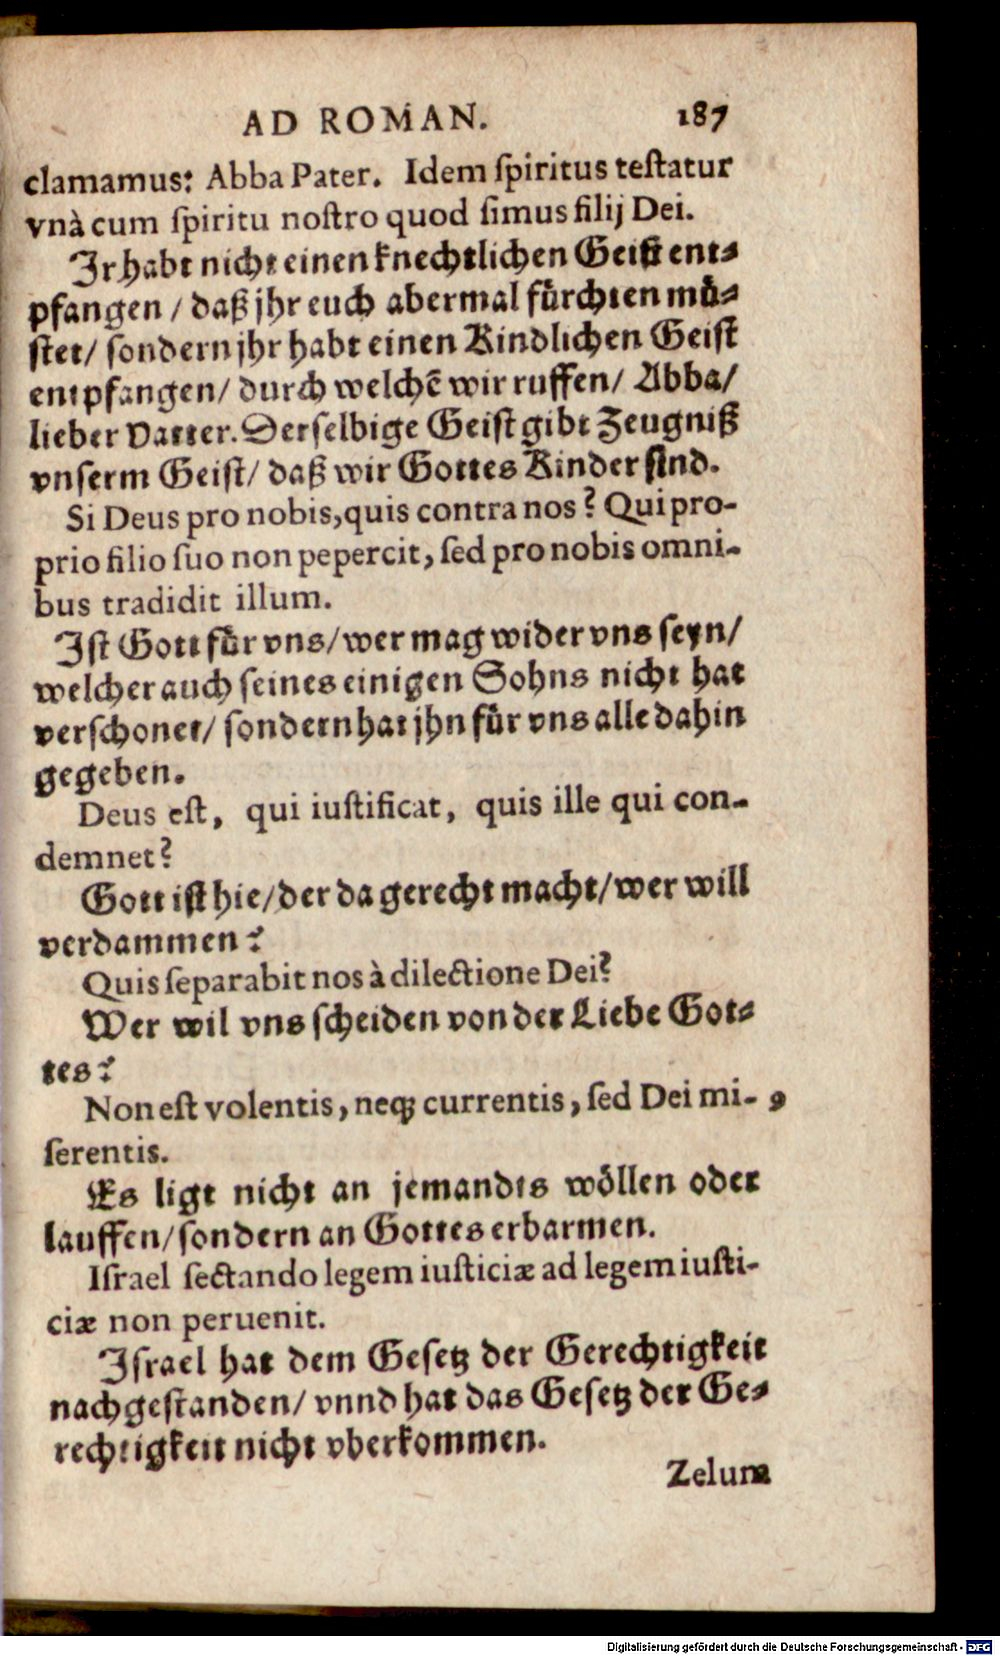 AD ROMAN. 187
clamamus: Abba Pater. Idem ſpiritus teſtatur
vnà cum ſpiritu noſtro quod ſimus filij Dei.
Jr habt nicht einen knechtlichen Geiſt ent⸗
pfangen / daß jhr euch abermal fuͤrchten muͤ⸗
ſtet / ſondern jhr habt einen Kindlichen Geiſt
entpfangen / durch welchẽ wir ruffen / Abba /
lieber Vatter. Derſelbige Geiſt gibt Zeugniß
vnſerm Geiſt / daß wir Gottes Kinder ſind.
Si Deus pro nobis, quis contra nos? Qui pro-
prio filio ſuo non pepercit, ſed pro nobis omni-
bus tradidit illum.
Jſt Gott fuͤr vns / wer mag wider vns ſeyn /
welcher auch ſeines einigen Sohns nicht hat
verſchonet / ſondern hat jhn fuͤr vns alle dahin
gegeben.
Deus eſt, qui iuſtificat, quis ille qui con-
demnet?
Gott iſt hie / der da gerecht macht / wer will
verdammen?
Quis ſeparabit nos à dilectione Dei?
Wer wil vns ſcheiden von der Liebe Got⸗
tes?
Non eſt volentis, neqꝫ currentis, ſed Dei mi-
ſerentis.
Es ligt nicht an jemandts woͤllen oder
lauffen / ſondern an Gottes erbarmen.
Iſrael ſectando legem iuſticiæ ad legem iuſti-
ciæ non peruenit.
Jſrael hat dem Geſetz der Gerechtigkeit
nachgeſtanden / vnnd hat das Geſetz der Ge⸗
rechtigkeit nicht vberkommen.
Zelum
Digitalisierung gefördert durch die Deutsche Forschungsgemeinschaft - DFG